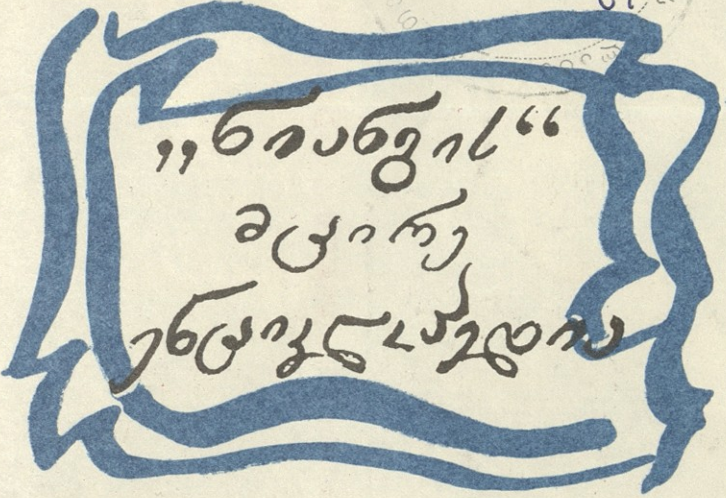 „ნიანგის“
მცირე
ენციკლოპედია